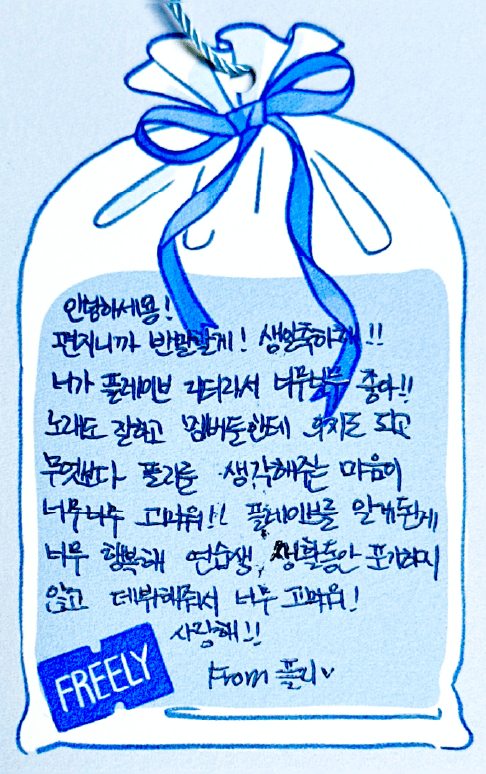 안녕하세용!
편지니까 반말할게! 생일축하해!!
너가 플레이브 리더라서 너무너무 좋아!!
노래도 잘하고 멤버들한테 의지도 되고
무엇보다 플리를 생각해주는 마음이
너무너무 고마워!! 플레이브를 알게된게
너무 행복해 연습생 생활동안 포기하지
않고 데뷔해줘서 너무 고마워!
사랑해!!
From 플리♡
FREELY